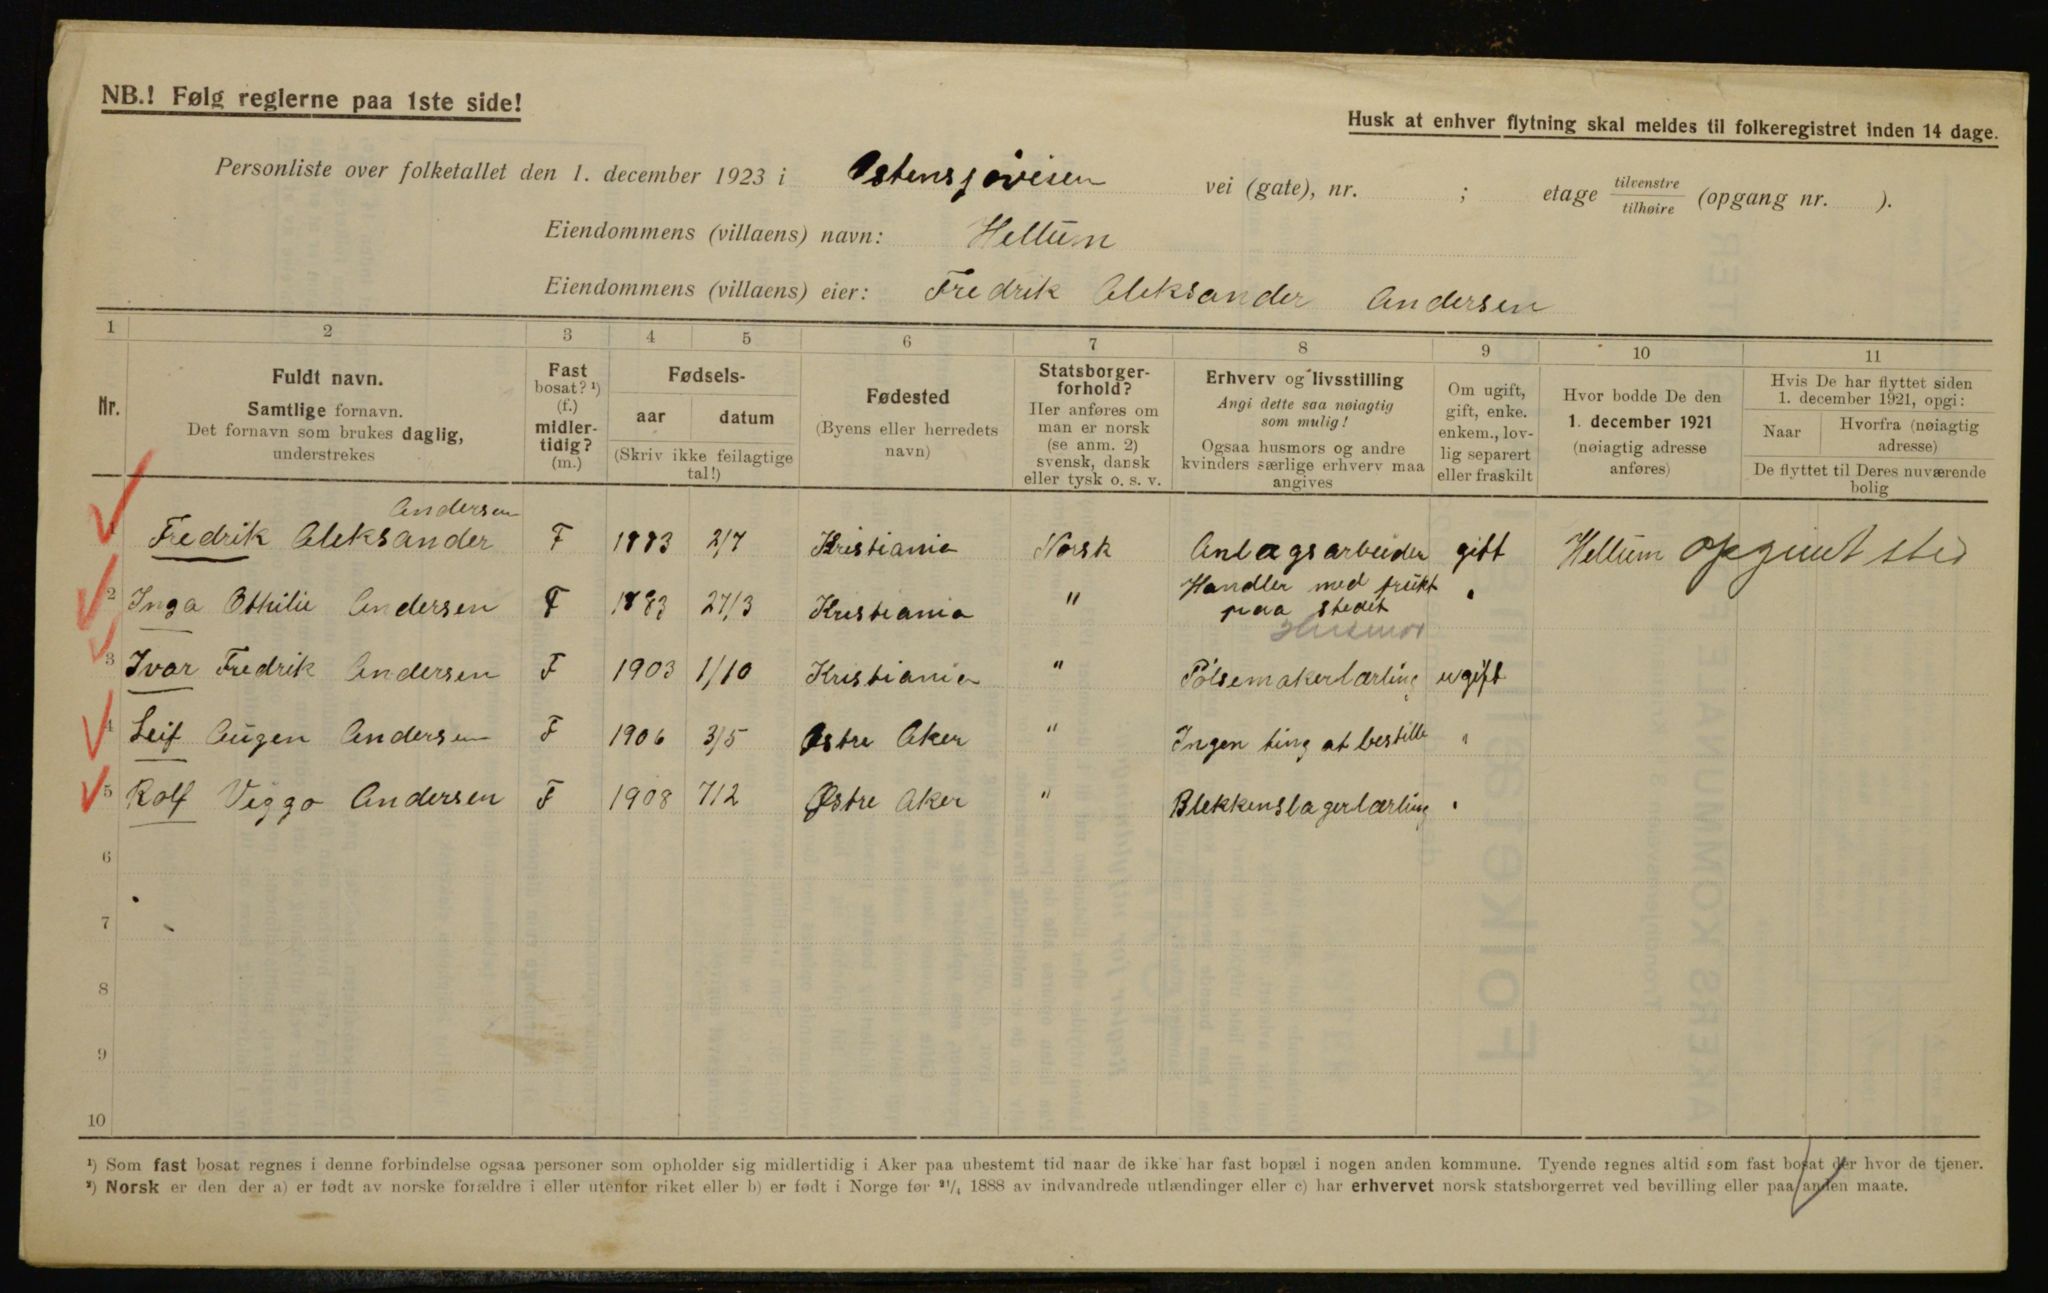 NB.! Følg reglerne paa 1ste side!
Husk at enhver flytning skal meldes til folkeregistret inden 14 dage.
Personliste over folketallet den 1. december 1923 i Østensjøveien vei (gate), nr. ; etage tilvenstre tilhøire (opgang nr. ).
Eiendommens (villaens) navn: Hellum
Eiendommens (villaens) eier: Fredrik Aleksander Andersen
1 2 3 4 5 6 7 8 9 10 11
Nr.
Fuldt navn.
Samtlige fornavn.
Det fornavn som brukes daglig,
understrekes
Fast
bosat? ¹)
(f.)
midler-
tidig?
(m.)
Fødsels-
aar datum
(Skriv ikke feilagtige
tal!)
Fødested
(Byens eller herredets
navn)
Statsborger-
forhold?
Her anføres om
man er norsk
(se anm. 2)
svensk, dansk
eller tysk o. s. v.
Erhverv og livsstilling
Angi dette saa nøiagtig
som mulig!
Ogsaa husmors og andre
kvinders særlige erhverv maa
angives
Om ugift,
gift, enke.
enkem., lov-
lig separert
eller fraskilt
Hvor bodde De den
1. december 1921
(nøiagtig adresse
anføres)
Hvis De har flyttet siden
1. december 1921, opgi:
Naar Hvorfra (nøiagtig
adresse)
De flyttet til Deres nuværende
bolig
Andersen
1 Fredrik Aleksander F 1883 2/7 Kristiania Norsk Anlagsarbeider gift Hellum
2 Inga Othilie Andersen F 1883 27/3 Kristiania " Handler med frukt "
paa stedet
Husmor
3 Ivar Fredrik Andersen F 1903 1/10 Kristiania " Pölsemakerlærling ugift
4 Leif Augen Andersen F 1906 3/5 Østre Aker " Ingen ting at bestille "
5 Rolf Viggo Andersen F 1908 7/2 Østre Aker " Blekkenslagerlærling "
6
7
8
9
10
¹) Som fast bosat regnes i denne forbindelse ogsaa personer som opholder sig midlertidig i Aker paa ubestemt tid naar de ikke har fast bopæl i nogen anden kommune. Tyende regnes altid som fast bosat der hvor de tjener.
²) Norsk er den der a) er født av norske forældre i eller utenfor riket eller b) er født i Norge før ²¹/₄ 1888 av indvandrede utlændinger eller c) har erhvervet norsk statsborgerret ved bevilling eller paa anden maate.